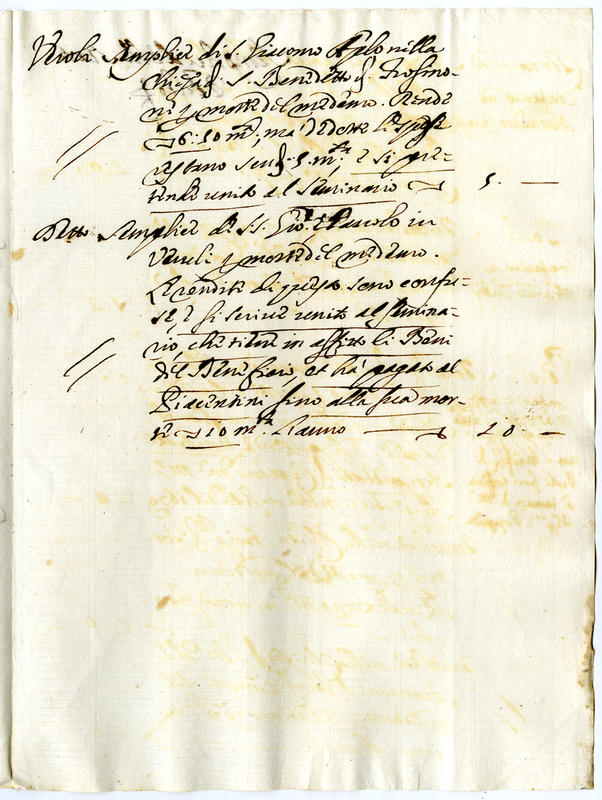 Veroli Semplice di S. Giacomo Ap.lo nella
Chiesa di S. Benedetto di Frosino-
ni p morte del medemo. Rende
10 m.ta, ma dedotte le spese
restano scudi 5 m.ta, e si pre-
tende unito al Seminario 5. —
Detto Semplice di S.S. Gio. e Paolo in
Veroli p morte del medemo.
Le rendite di questo sono confu-
se, e si scrive unito al Semina-
rio, che tiene in affitto li Beni
del Beneficio, et ha pagato al
Piacentini fino alla sua mor-
te 10 m.ta l'anno — 10. —